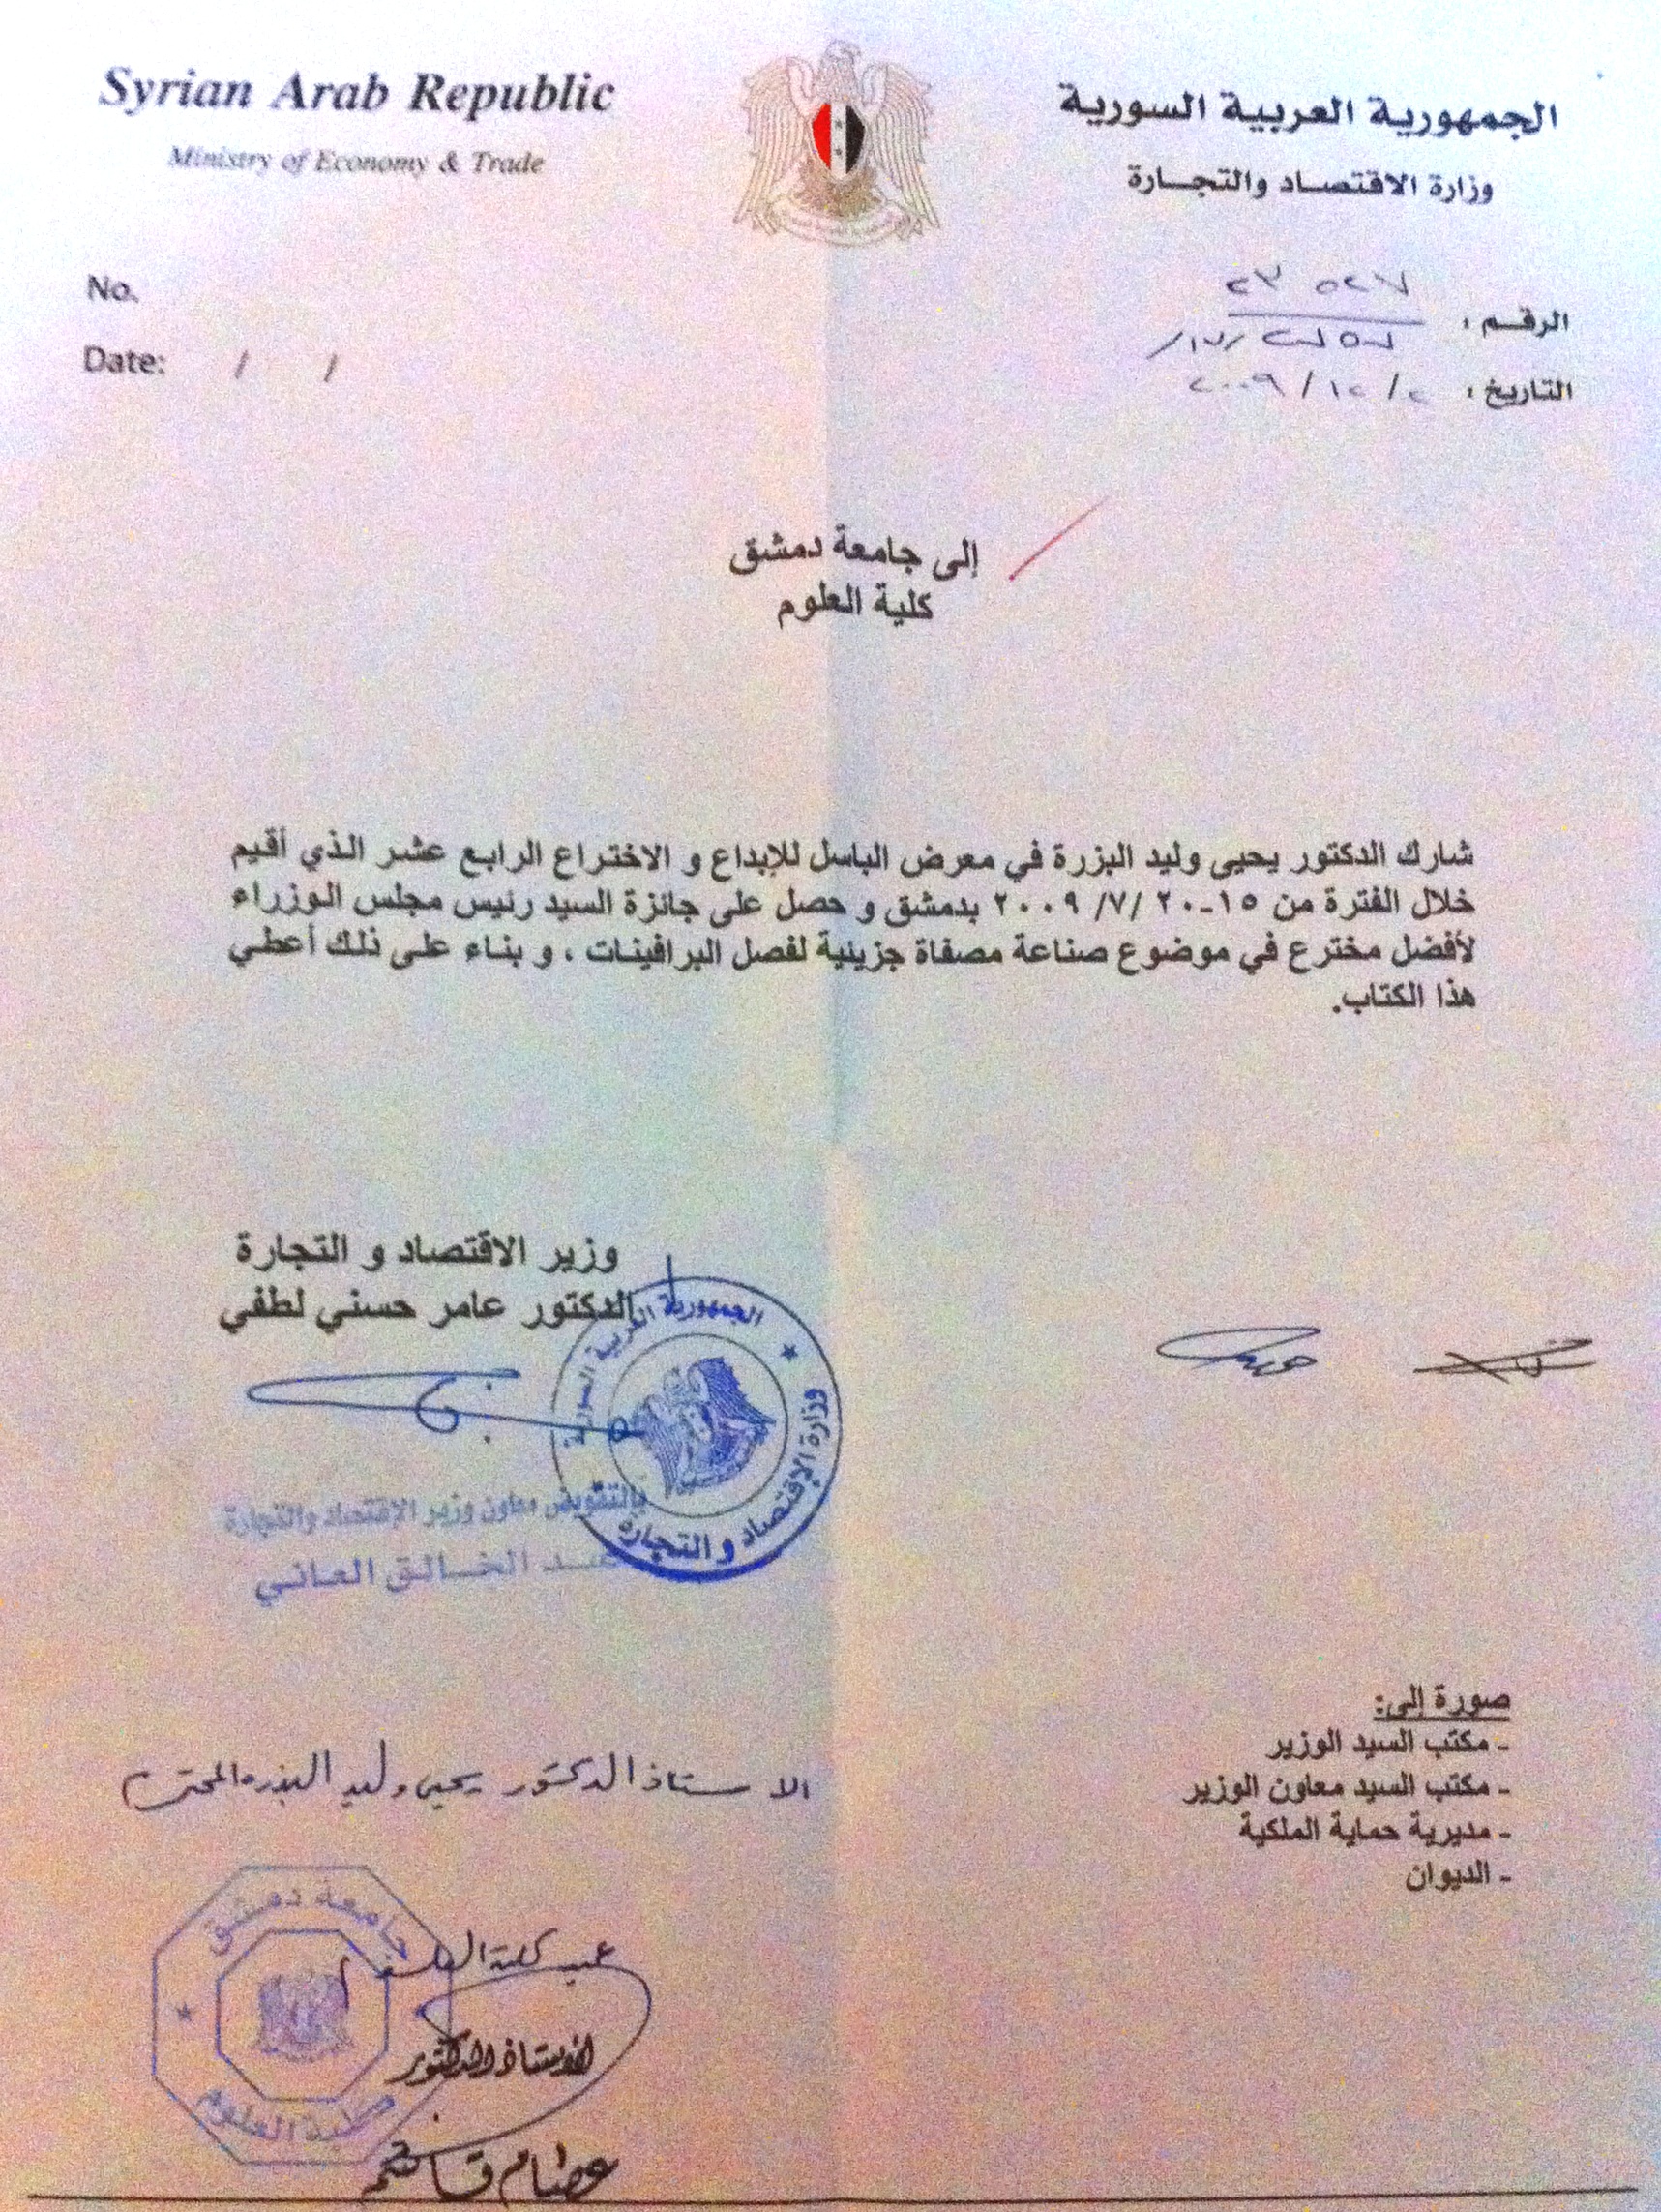 Syrian Arab Republic
Ministry of Economy & Trade
الجمهورية العربية السورية
وزارة الاقتصاد والتجارة
No.
Date: / /
الرقم :
التاريخ : ٢ / ١٢ / ٢٠٠٩
إلى جامعة دمشق
كلية العلوم
شارك الدكتور يحيى وليد البزرة في معرض الباسل للإبداع و الاختراع الرابع عشر الذي أقيم
خلال الفترة من ١٥-٢٠ /٧/ ٢٠٠٩ بدمشق و حصل على جائزة السيد رئيس مجلس الوزراء
لأفضل مخترع في موضوع صناعة مصفاة جزيئية لفصل البرافينات ، و بناء على ذلك أعطي
هذا الكتاب.
وزير الاقتصاد و التجارة
الدكتور عامر حسني لطفي
الجمهورية العربية السورية
وزارة الإقتصاد و التجارة
بالتفويض معاون وزير الإقتصاد والتجارة
الخالق العاني
صورة إلى:
- مكتب السيد الوزير
- مكتب السيد معاون الوزير
- مديرية حماية الملكية
- الديوان
الاستاذ الدكتور يحيى وليد البزره المحترم
جامعة دمشق
كلية العلوم
عميد كلية العلوم
الأستاذ الدكتور
عصام قاسم